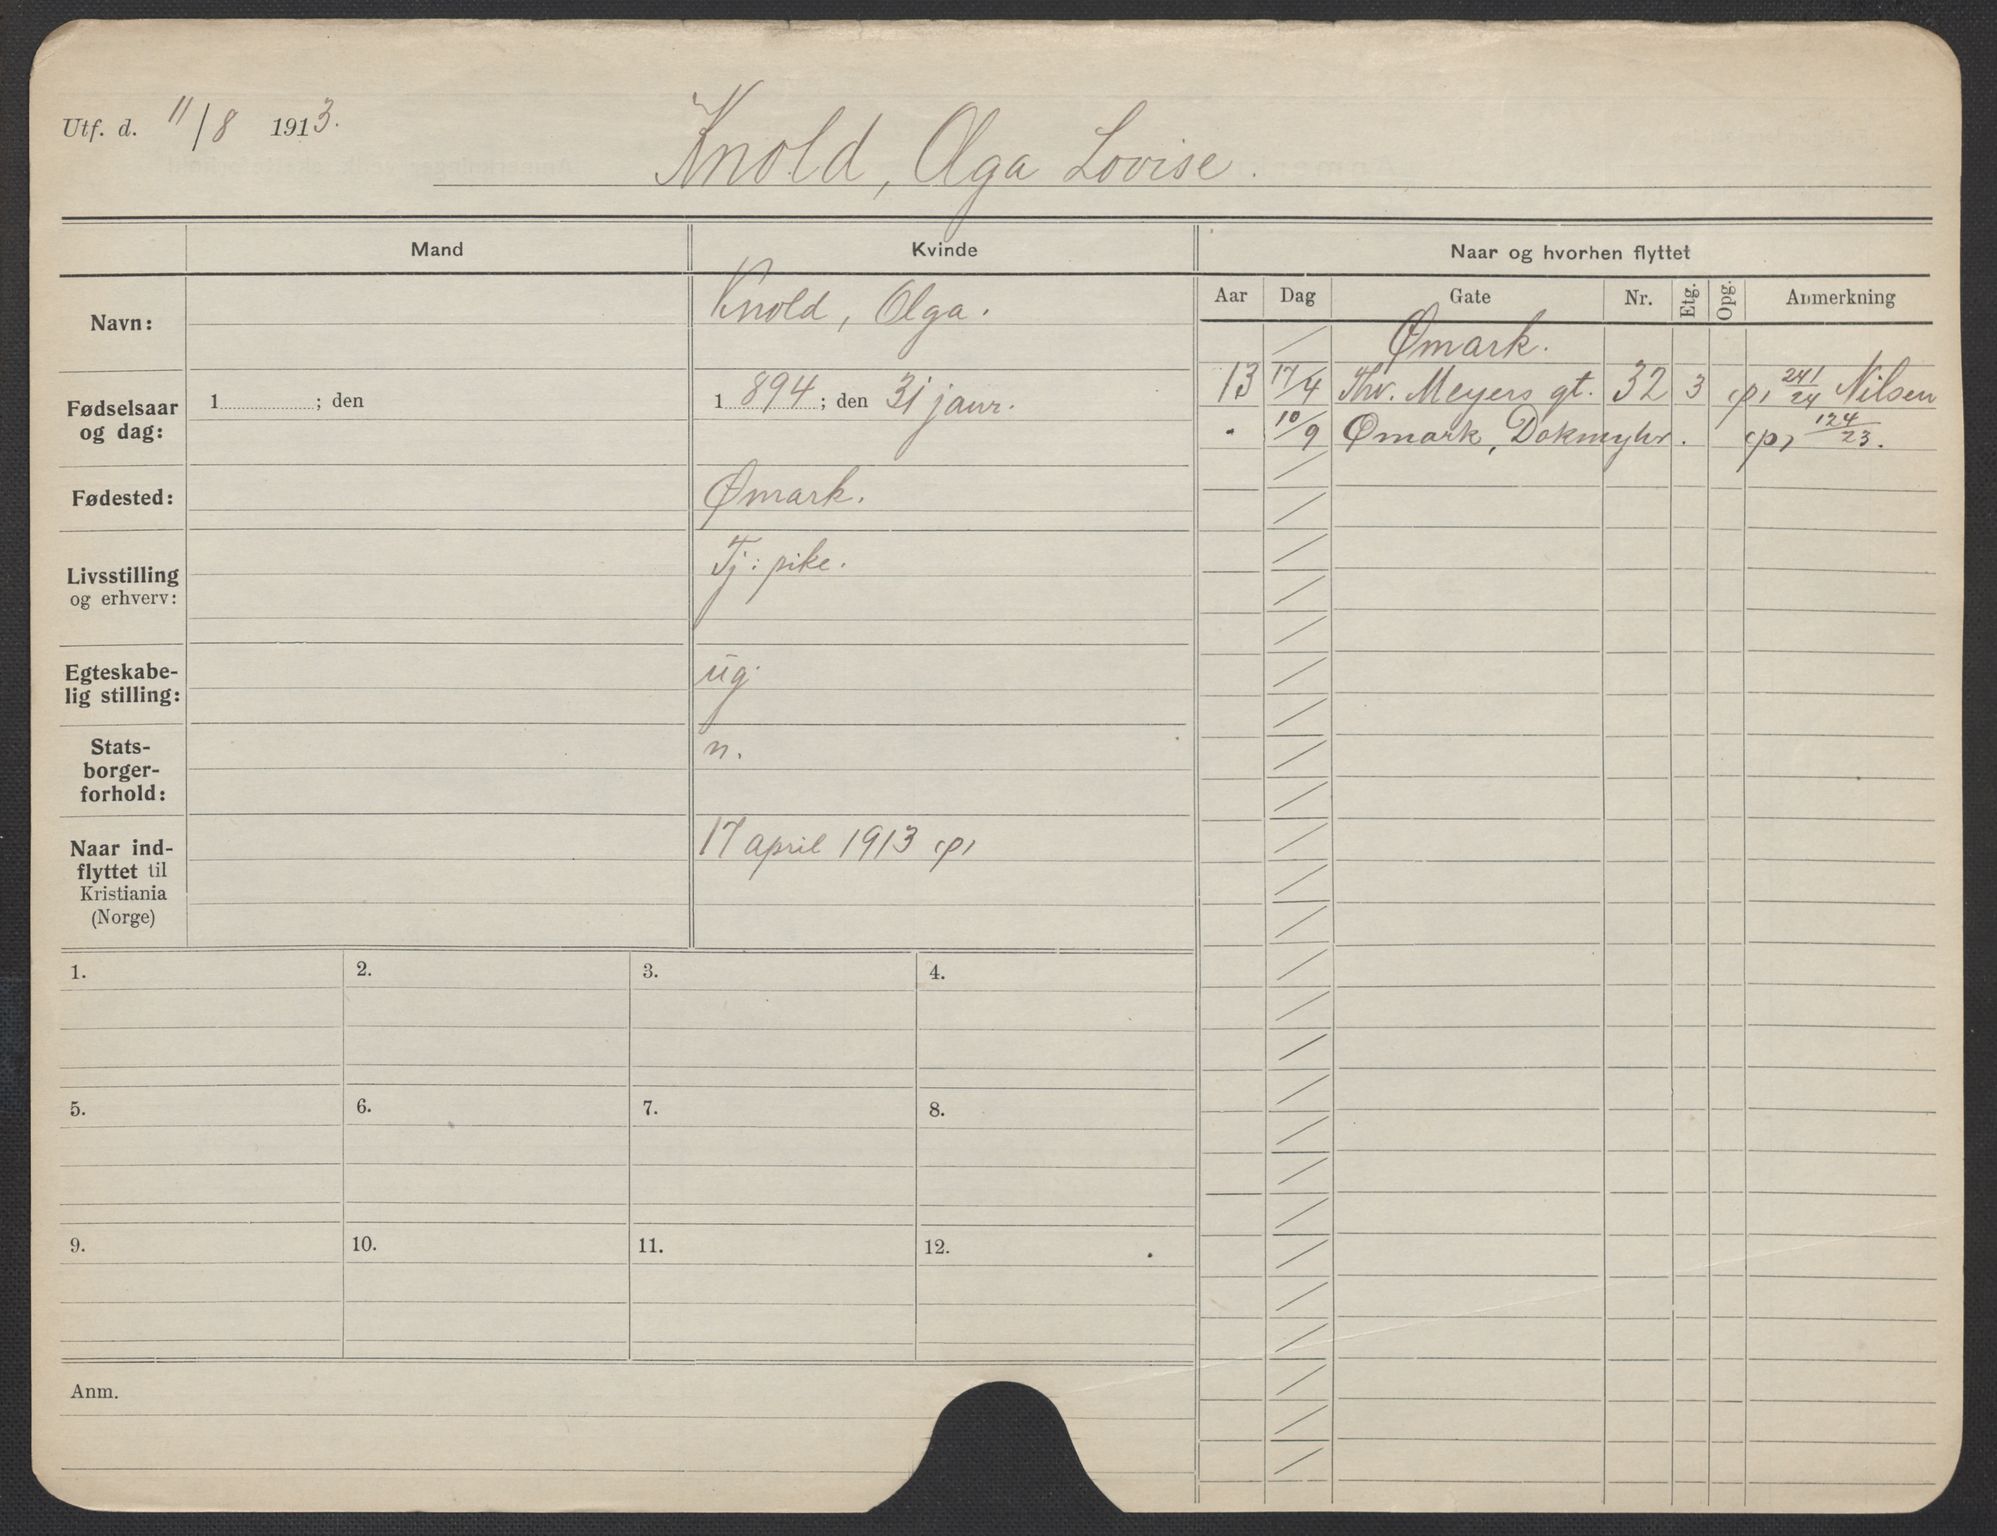 Utf. d. 11/8 1913.
Knold, Olga Lovise.
Mand
Kvinde
Naar og hvorhen flyttet
Aar Dag Gate Nr. Etg. Opg. Anmerkning
Navn:
Knold, Olga.
Fødselsaar og dag:
1 ; den
1 894 ; den 31 janr.
Fødested:
Ømark.
Livsstilling
og erhverv:
Tj: pike.
Egteskabe-
lig stilling:
ug.
Stats-
borger-
forhold:
n.
Naar ind-
flyttet til
Kristiania
(Norge)
17 april 1913 (p)
Ømark.
13 17/4 Thv. Meyers gt. 32 3 (p) 241/24 Nilsen
" 10/9 Ømark, (p) 124/23.
1. 2. 3. 4.
5. 6. 7. 8.
9. 10. 11. 12.
Anm.